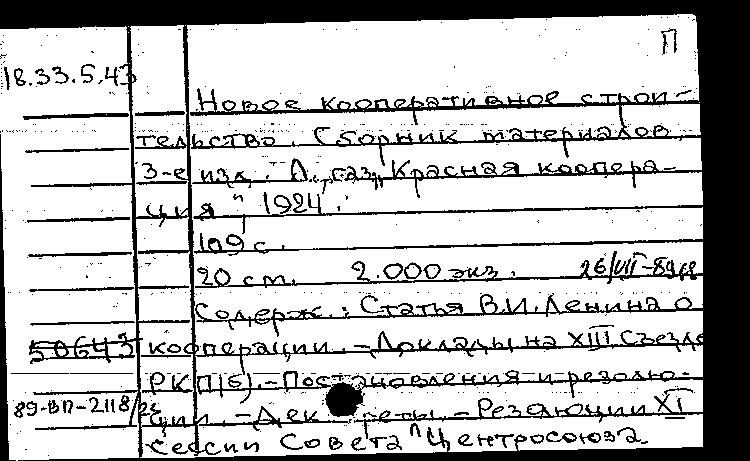 П
18.33.5.43
Новое кооперативное строи-
тельство. Сборник материалов.
3-е изд. Л., газ. „Красная коопера-
ция", 1924.
109 с.
20 см. 2.000 экз. 26/VII-89
Содерж.: Статья В.И. Ленина о
50643 кооперации. - Доклады на XIII Съезде
РКП(б). - Постановления и резолю-
89-ВП-2118/23 ции. - Декреты. - Резолюции XI
сессии Совета Центросоюза